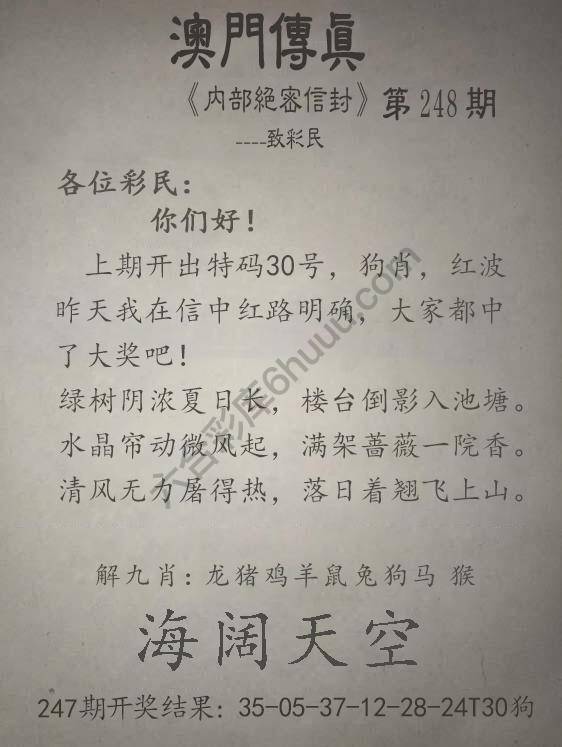 澳門傳眞
《内部絕密信封》第248期
----致彩民
各位彩民：
你们好！
上期开出特码30号，狗肖，红波
昨天我在信中红路明确，大家都中
了大奖吧！
绿树阴浓夏日长，楼台倒影入池塘。
水晶帘动微风起，满架蔷薇一院香。
清风无力屠得热，落日着翘飞上山。
解九肖：龙猪鸡羊鼠兔狗马 猴
海阔天空
247期开奖结果：35-05-37-12-28-24T30狗
六合彩库6huuu.com